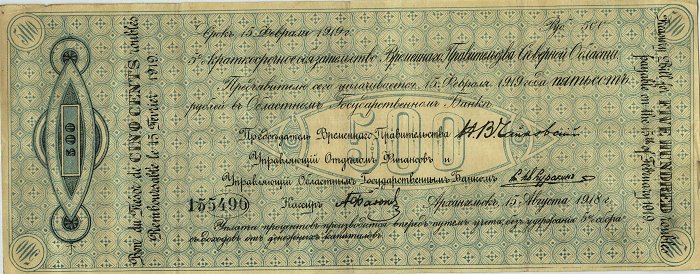 500
500
Срокъ 15 Февраля 1919 г.
Руб. 500
5% Краткосрочное обязательство Временнаго Правительства Сѣверной Области
Предъявителю сего уплачивается 15 Февраля 1919 года пятьсотъ
рублей въ Областномъ Государственномъ Банкѣ
Предсѣдатель Временнаго Правительства Н. В. Чайковский
Управляющій Отдѣломъ Финансовъ и
Управляющій Областнымъ Государственнымъ Банкомъ
155490 Кассиръ Архангельскъ, 15 Августа 1918 г.
Уплата процентовъ производится впередъ путемъ учета безъ удержанія 5% сбора
съ доходовъ отъ денежныхъ капиталовъ.
500
500
Bon du Trésor de CINQ CENTS roubles
Remboursable le 15 Février 1919
Treasury Bill for FIVE HUNDRED roubles
payable on the 15th of February 1919
500
500